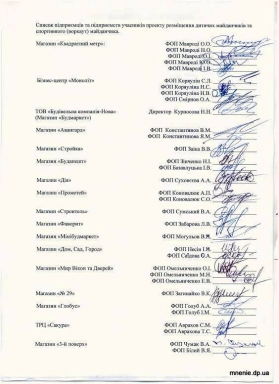 Список підприємців та підприємств учасників проекту розміщення дитячих майданчиків та
спортивного (воркаут) майданчика.
Магазин «Квадратний метр» ФОП Мавроді О.О.
ФОП Мавроді Н.О.
ФОП Мавроді О.І.
ФОП Мавроді
ФОП Мавроді І.В.
Бізнес-центр «Моноліт» ФОП Коркуліа С.І.
ФОП Н.С.
ФОП
ФОП Смірнов О.А.
ТОВ «Будівельна компанія-Нова» Директор Курносова Н.Н.
(Магазин «Будмаркет»)
Магазин «Авангард» ФОП Константинов В.М.
ФОП Константинова Я.М.
Магазин «Стройка» ФОП Заіка В.В.
Магазин «Буданешт» ФОП Зінченко Н.І.
ФОП І.В.
Магазин «Два» ФОП Суховєєва А.А.
Магазин «Прометей» ФОП Коновалюк А.П.
ФОП Коновалюк С.О.
Магазин «Строитель» ФОП Сунський В.А.
Магазин «Фаворит» ФОП Забарова Л.В.
Магазин «Мінібудмаркет» ФОП Могульов В.Н.
Магазин «Дом, Сад, Город» ФОП І.М.
ФОП О.А.
Магазин «Мир Вікон та Дверей» ФОП Омельянченко О.І.
ФОП Омельянченко М.Н.
ФОП Омельянченко Е.В.
Магазин «№ 29» ФОП Загинайко В.К.
Магазин «Глобус» ФОП Голуб А.А.
ФОП Голуб І.М.
ТРЦ «Сакура» ФОП Аврахов С.М.
ФОП Аврахова Т.С.
Магазин «5-й поверх» ФОП Чумак В.А.
ФОП Білий В.Я.
mnenie.dp.ua